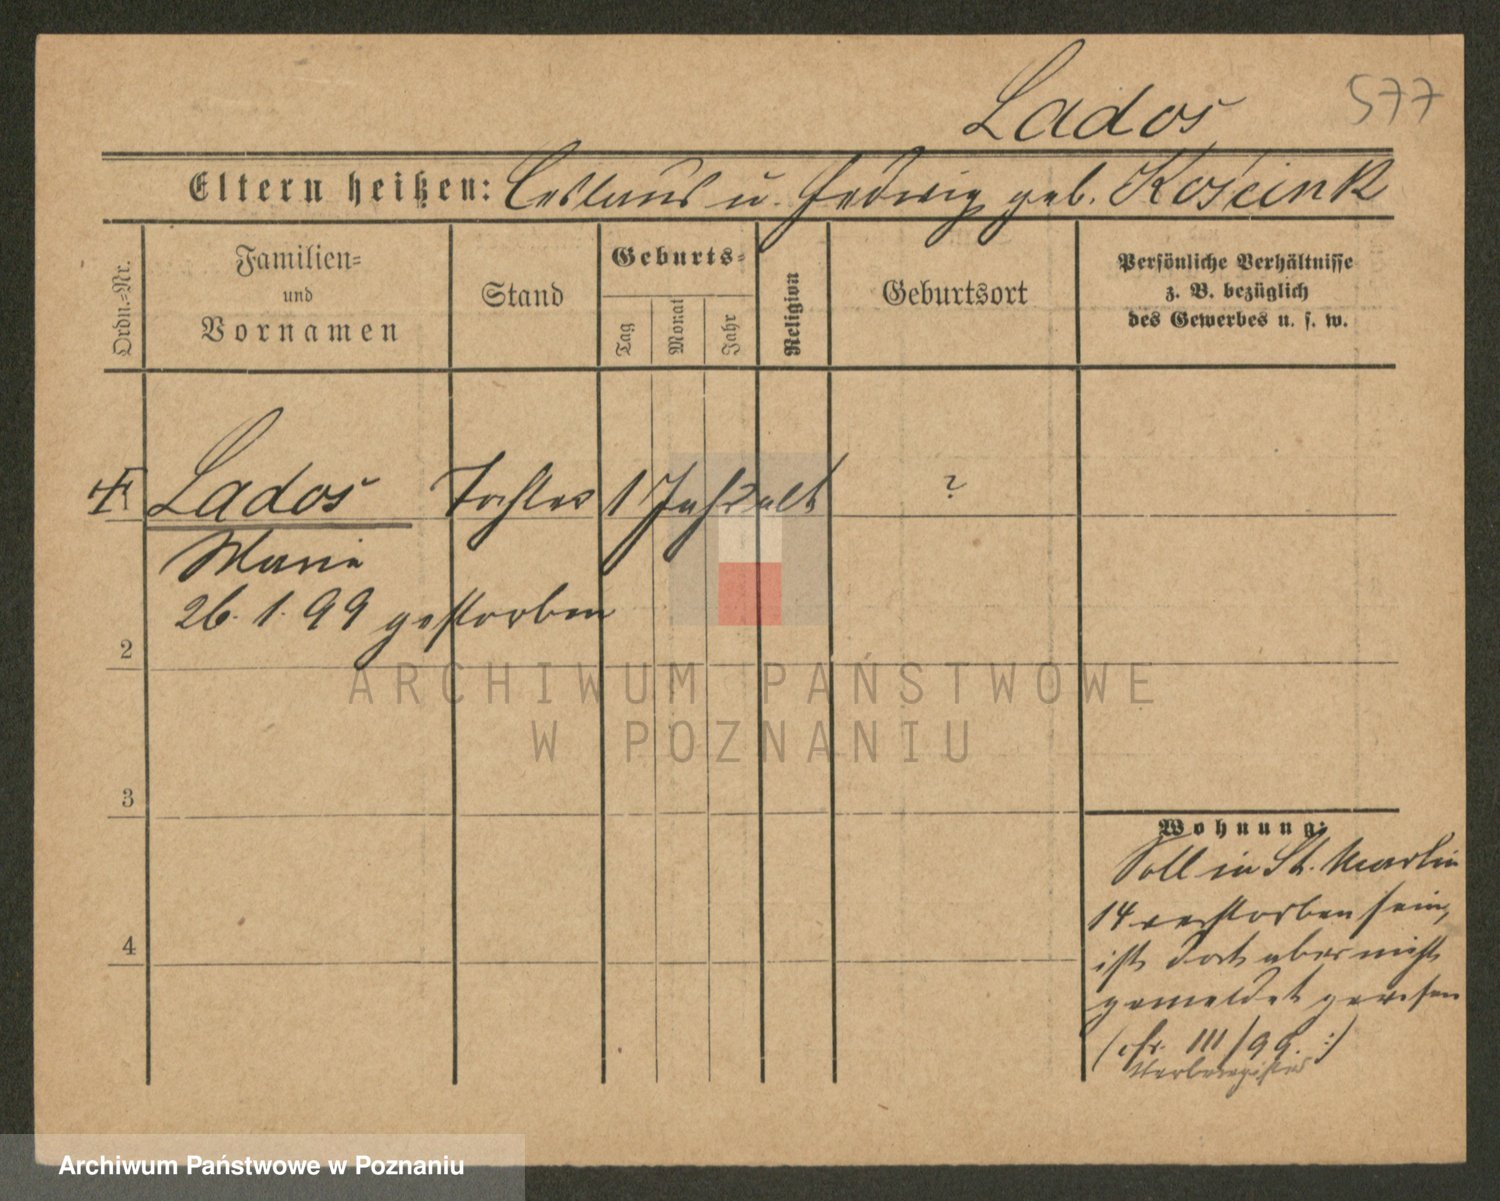 Lados
577
Eltern heißen: Ceslaus u. Hedwig geb. Koścink
Ordn.-Nr.
Familien-
und
Vornamen
Stand
Geburts-
Tag
Monat
Jahr
Religion
Geburtsort
Persönliche Verhältnisse
z. B. bezüglich
des Gewerbes u. s. w.
Lados Tochter 1 Jahr alt ?
Marie
26. 1. 99 gestorben
2
3
4
Wohnung:
Soll in St. Martin
14 verstorben sein,
ist dort aber nicht
gemeldet gewesen
(cfr. III/99. :)
Sterberegister
ARCHIWUM PAŃSTWOWE
W POZNANIU
Archiwum Państwowe w Poznaniu